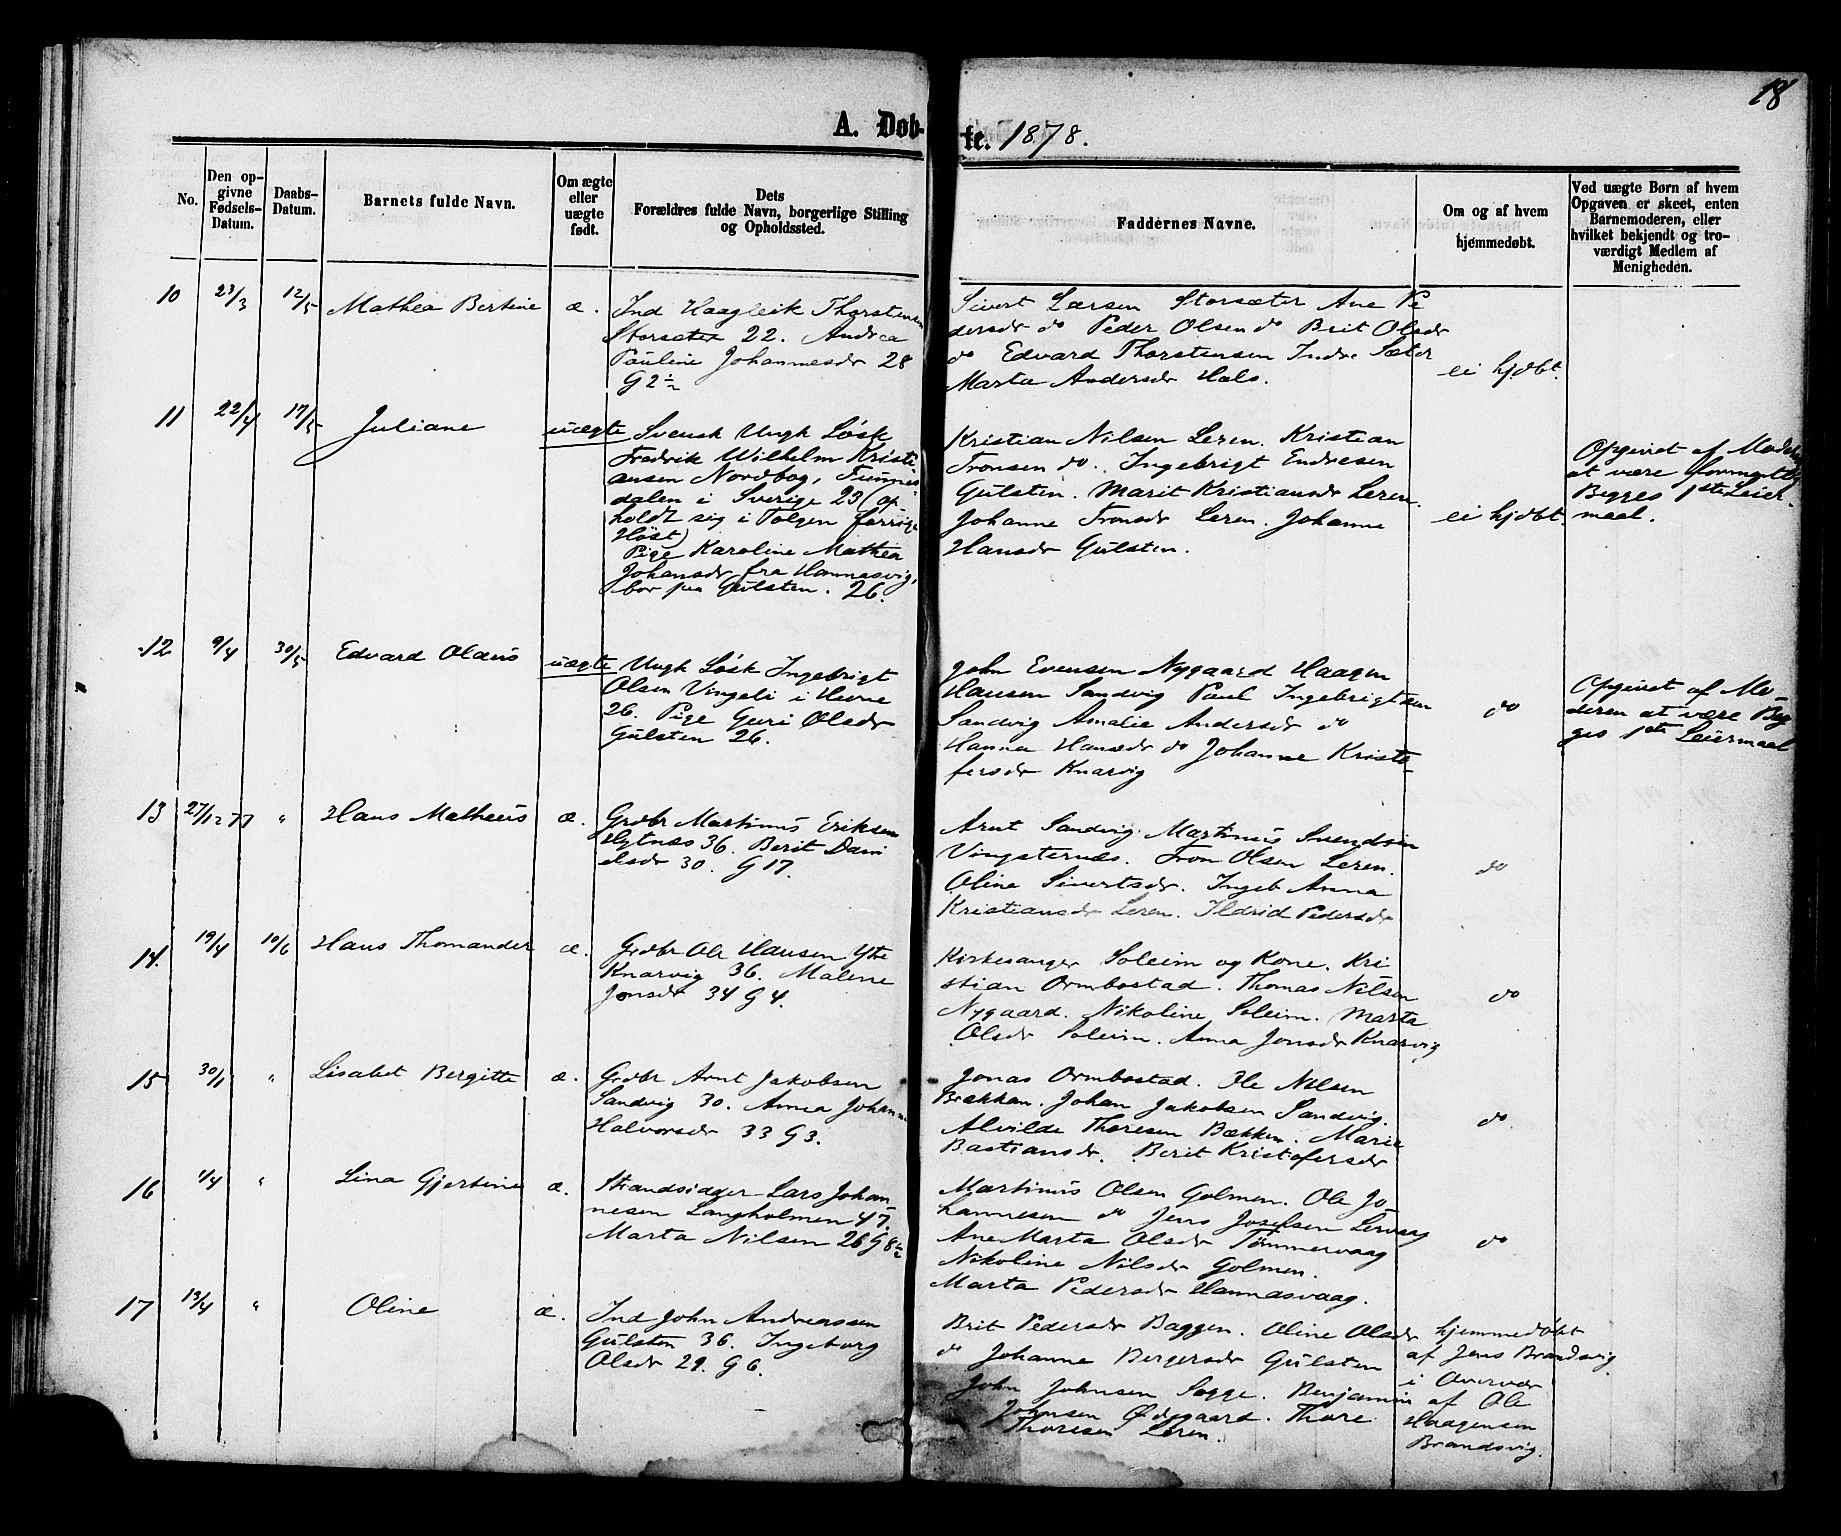 18
A. Døb-
te. 1878.
No.
Den op-
givne
Fødsels-
Datum.
Daabs-
Datum.
Barnets fulde Navn.
Om ægte
eller
uægte
født.
Dets
Forældres fulde Navn, borgerlige Stilling
og Opholdssted.
Faddernes Navne.
Om og af hvem
hjemmedøbt.
Ved uægte Børn af hvem
Opgaven er skeet, enten
Barnemoderen, eller
hvilket bekjendt og tro-
værdigt Medlem af
Menigheden.
10 23/3 12/5 Mathea Bertine æ.
Ind Haagleik Thorstensen
Storsæter 22. Andrea
Pauline Johannesdr 28
G 2½
Sivert Larsen Storsæter Ane Pe
dersdr do Peder Olsen do Brit Olsdr
do Edvard Thorstensen Indre Sæter
Marta Andersdr Hals.
ei hjdbt.
11 22/4 17/5 Juliane uægte
Svensk Ungk Løsk
Fredrik Wilhelm Kristi-
ansen Nordbog,
dalen i Sverige 23 (op
holdt sig i Tolgen forrige
Høst)
Pige Karoline Mathea
Johansdr fra Hannasvig,
bor paa Gulsten. 26.
Kristian Nilsen Leren. Kristian
Tronsen do. Ingebrigt Endresen
Gulsten. Marit Kristiansdr Leren.
Johanne Tronsdr Leren. Johanne
Hansdr Gulsten.
ei hjdbt.
Opgivet af Moderen
at være
Begges 1ste Leier
maal.
12 9/4 30/5 Edvard Olaus uægte
Ungk Løsk Ingebrigt
Olsen Vingeli i Hevne
26. Pige Guri Olsdr
Gulsten 26.
John Evensen Nygaard Haagen
Hansen Sandvig Paul Ingebrigtsen
Sandvig Amalie Andersdr do
Hanna Hansdr do Johanne Kristo-
fersdr Knarvig
do
Opgivet af Mo-
deren at være Beg
ges 1ste Leiermaal
13 27/12 77 " Hans Matheus æ.
Grdbr Martinus Eriksen
Hytnæs 36. Berit Dani
elsdr 30. G 17.
Arnt Sandvig. Martinus Svendsen
Vingsternæs. Tron Olsen Leren.
Oline Sivertsdr. Ingeb Anna
Kristiansdr Leren. Ildrid Pedersdr
do
14. 19/4 10/6 Hans Thomander æ.
Grdbr Ole Hansen Ytre
Knarvig 36. Malene
Jonsdr 34 G 4.
Kirkesanger Soleim og Kone. Kri
stian Ormbostad. Thomas Nilsen
Nygaard. Nikoline Soleim. Marta
Olsdr Soleim. Anna Jonsdr Knarvig
do
15 30/1 " Lisabet Bergitte æ.
Grdbr Arnt Jakobsen
Sandvig 30. Anna Johanne
Halvorsdr 33 G 3.
Jonas Ormbostad. Ole Nilsen
Brækken. Johan Jakobsen Sandvig.
Alvilde Thoresen Bækken. Marie
Bastiansdr. Berit Kristofersdr
do
16 1/4 " Lina Gjertine æ.
Strandsidder Lars Johan-
nesen Langholmen 47.
Marta Nilsen 26 G 8½
Martinus Olsen Golmen. Ole Jo-
hannesen do Jens Josefsen Lervaag
Ane Marta Olsdr Tømmervaag
Nikoline Nilsdr Golmen.
Marta Pedersdr Hannasvaag.
do
17 13/4 " Oline æ.
Ind John Andreassen
Gulsten 36. Ingeborg
Olsdr 29. G 6.
Brit Pedersdr Baggen. Oline Olsdr
do Johanne Bergersdr Gulsten
John Johnsen Sogge. Benjamin
Johnsen Ødegaard. Thore
Thoresen Leren.
hjemmedøbt
af Jens Brandsvig
i Overvær
af Ole
Haagensen
Brandsvig.